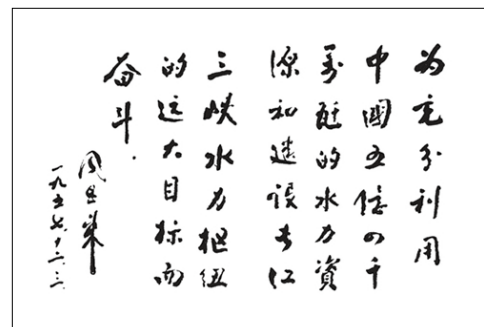 为充分利用
中國五億四千
萬瓩的水力資
源和建设长江
三峡水力枢纽
的远大目标而
奋斗.
周恩来
一九五七.十二.三.